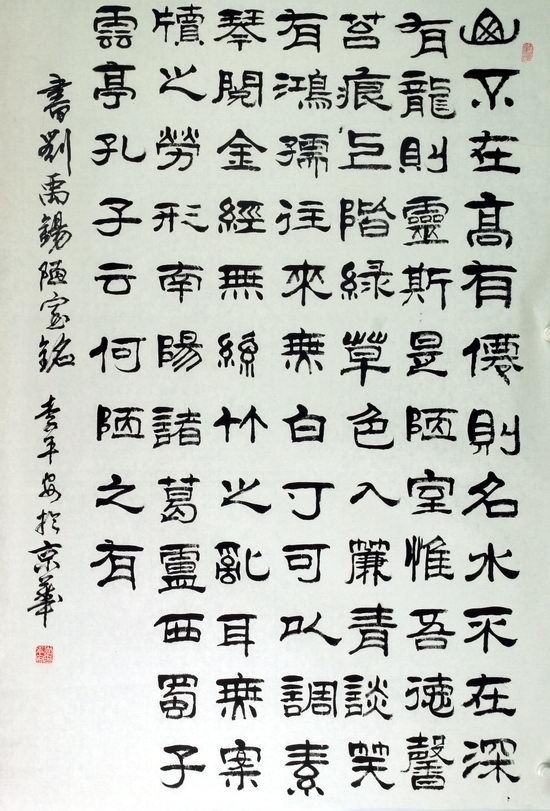 山不在高有僊則名水不在深
有龍則靈斯是陋室惟吾德馨
苔痕上階綠草色入簾青談笑
有鴻儒往來無白丁可以調素
琴閱金經無絲竹之亂耳無案
牘之勞形南陽諸葛盧西蜀子
雲亭孔子云何陋之有
書劉禹錫陋室銘 李平安於京華